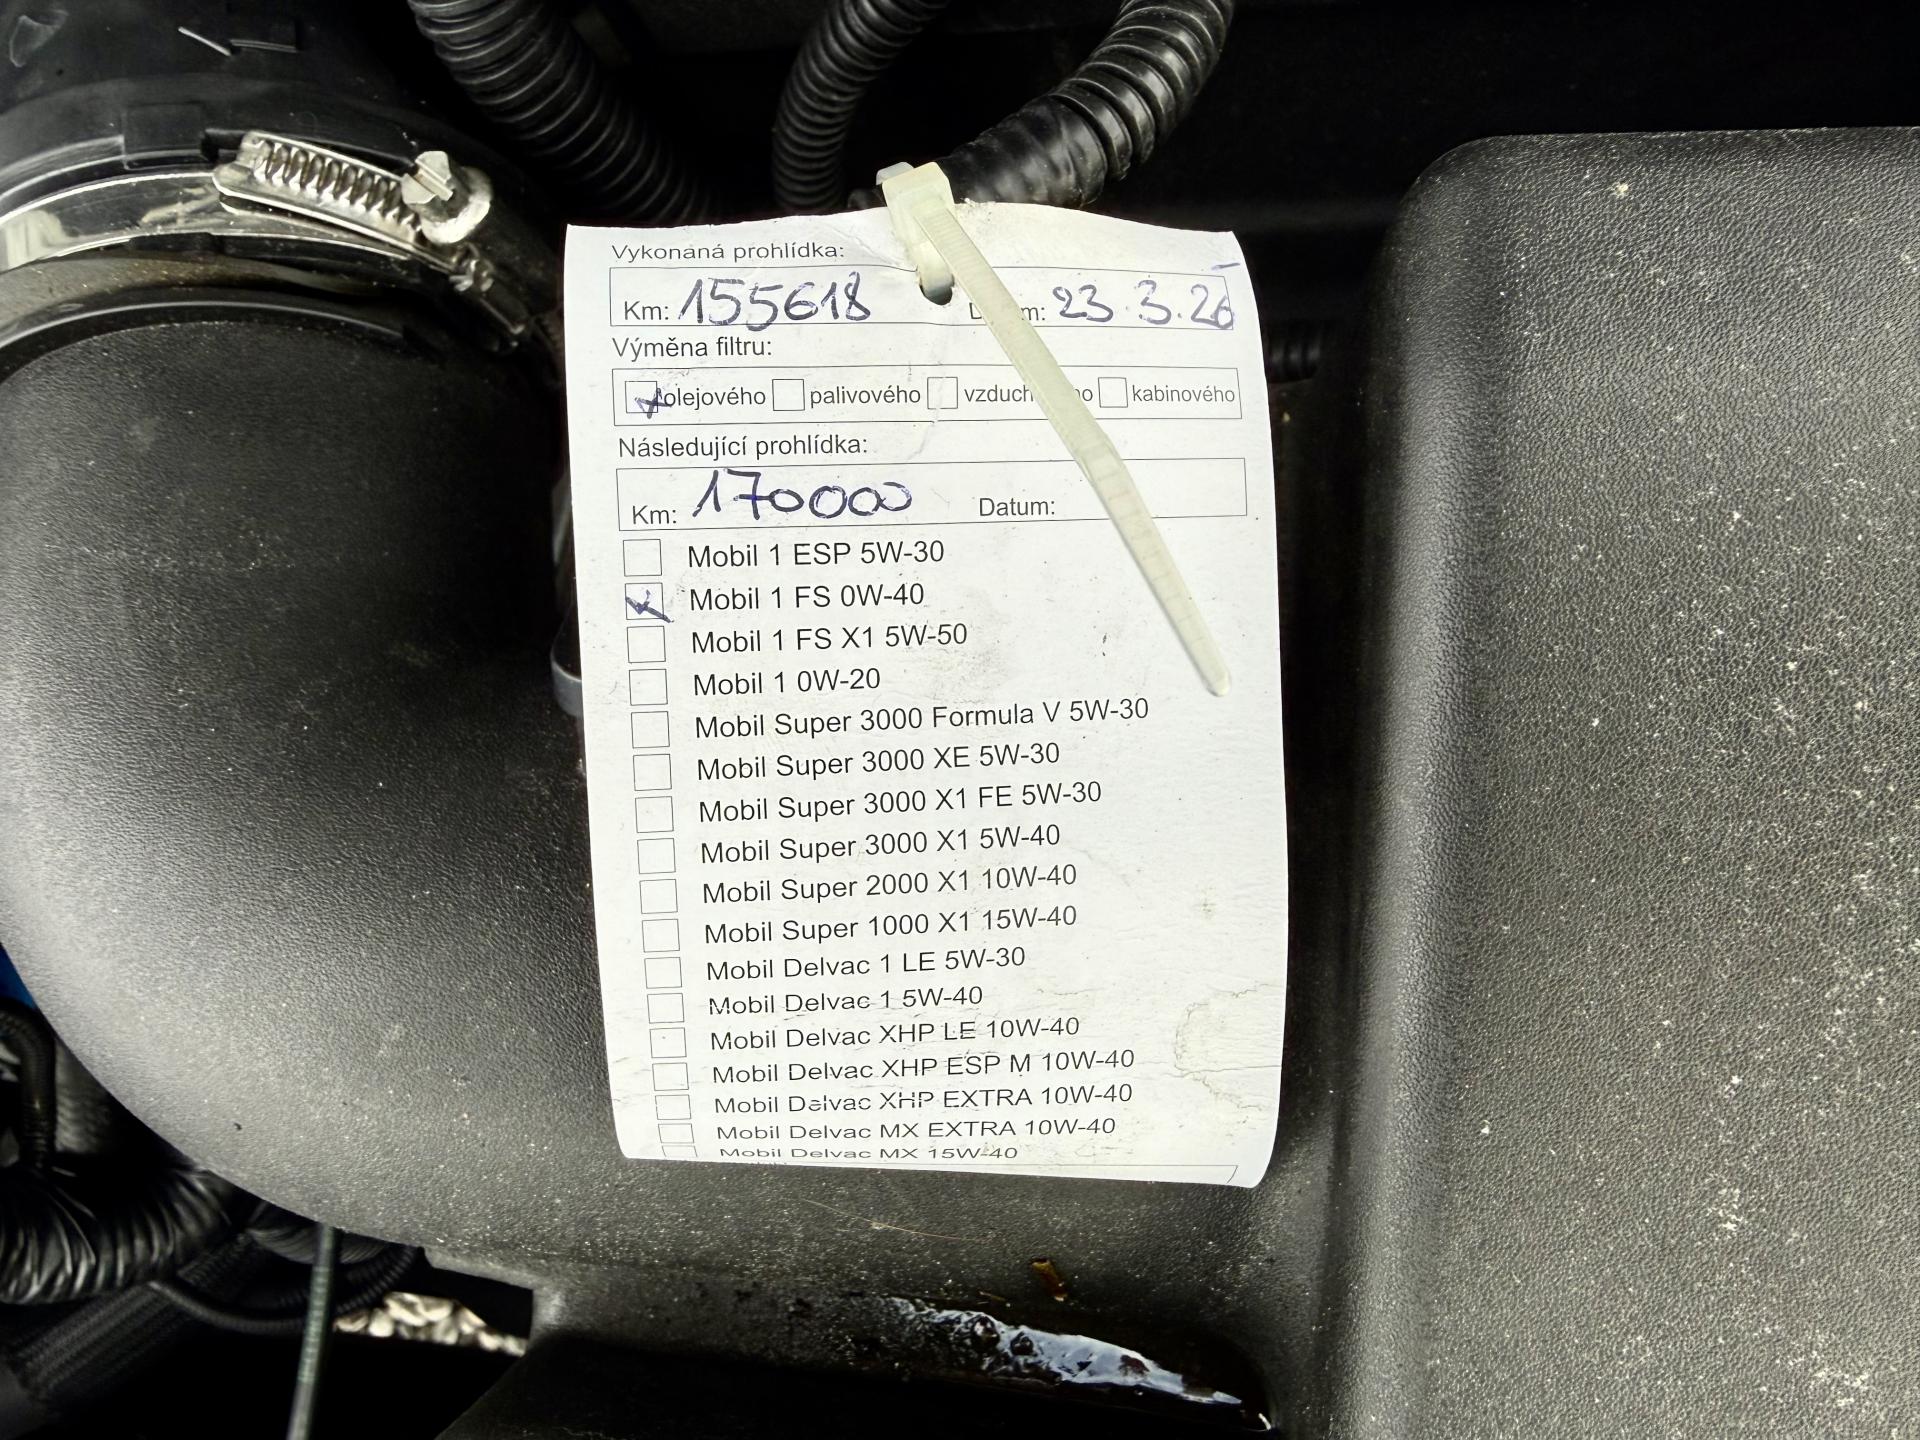 Vykonaná prohlídka:
Km: 155618 23.3.26
Výměna filtru:
olejového palivového kabinového
Následující prohlídka:
Km: 170000 Datum:
Mobil 1 ESP 5W-30
Mobil 1 FS 0W-40
Mobil 1 FS X1 5W-50
Mobil 1 0W-20
Mobil Super 3000 Formula V 5W-30
Mobil Super 3000 XE 5W-30
Mobil Super 3000 X1 FE 5W-30
Mobil Super 3000 X1 5W-40
Mobil Super 2000 X1 10W-40
Mobil Super 1000 X1 15W-40
Mobil Delvac 1 LE 5W-30
Mobil Delvac 1 5W-40
Mobil Delvac XHP LE 10W-40
Mobil Delvac XHP ESP M 10W-40
Mobil Delvac XHP EXTRA 10W-40
Mobil Delvac MX EXTRA 10W-40
Mobil Delvac MX 15W-40